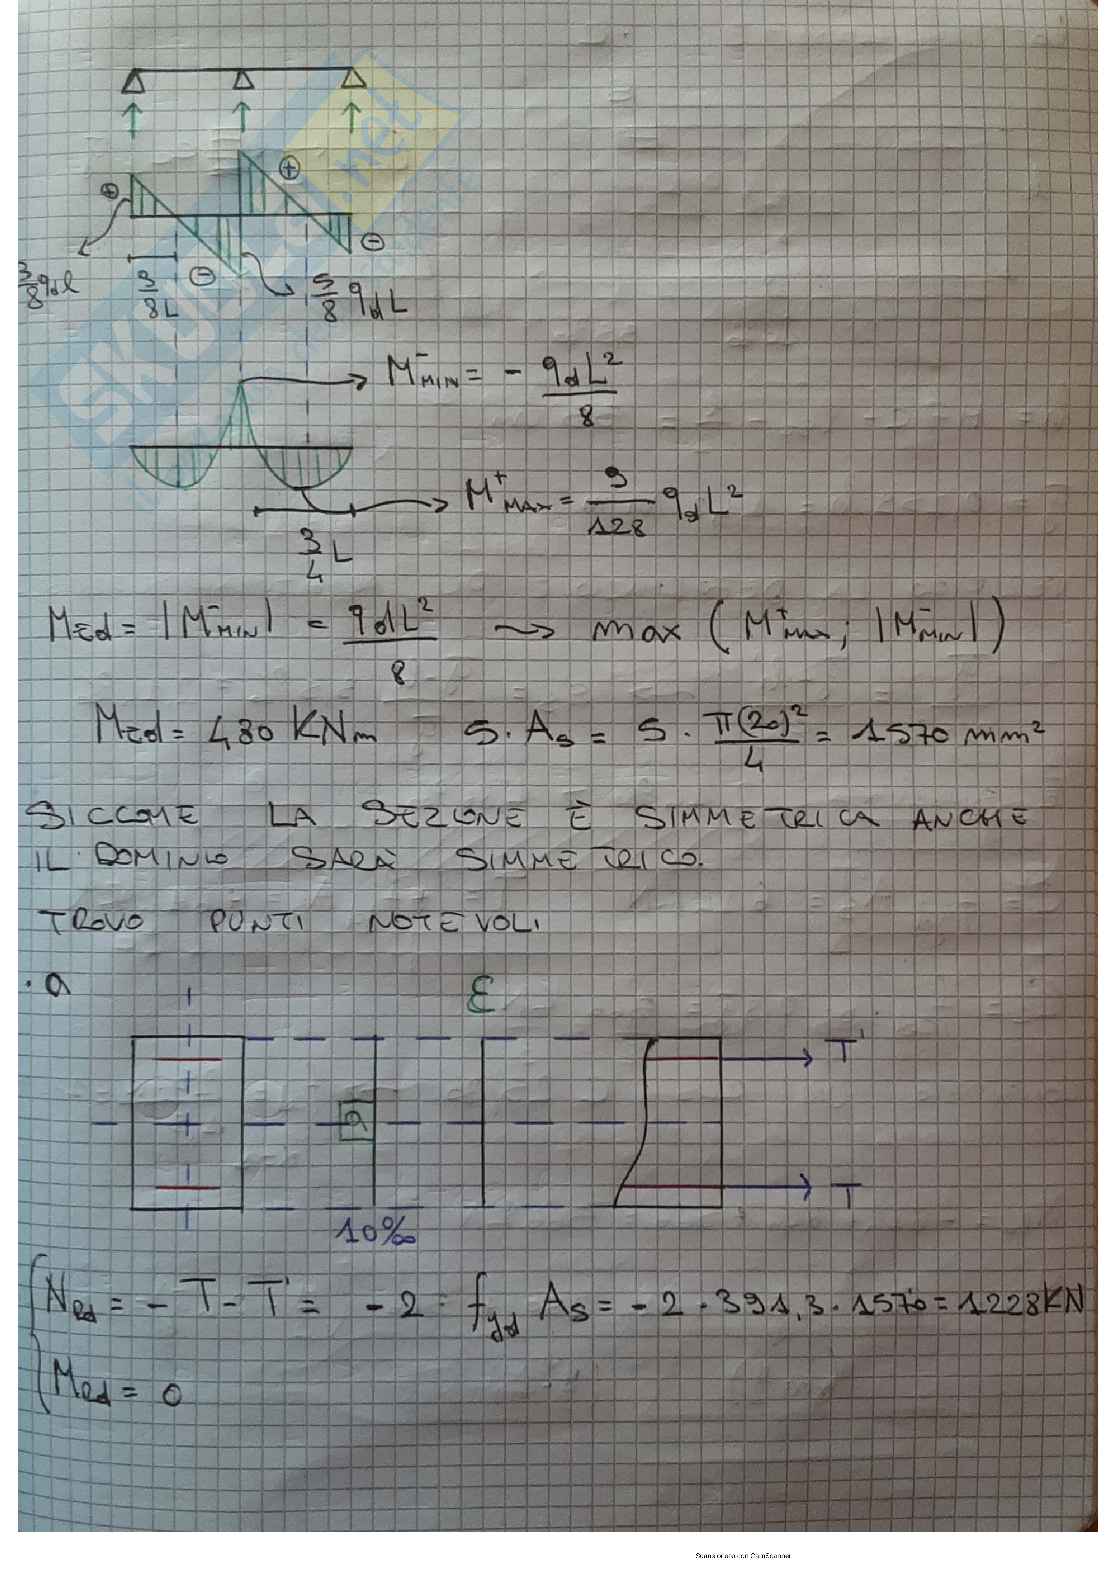 SKUOLA.net
⊕
⊕
⊖
3/8 qdl
3/8 L
⊖
5/8 qd L
M⁻MIN = - qd L²/8
M⁺MAX = 9/128 qd L²
3/4 L
MEd = |M⁻MIN| = qd L²/8 ⇝ max (M⁺MAX; |M⁻MIN|)
MEd = 480 KNm 5·As = 5·π(20)²/4 = 1570 mm²
SICCOME LA SEZIONE È SIMMETRICA ANCHE
IL DOMINIO SARÀ SIMMETRICO.
TROVO PUNTI NOTEVOLI
·a
ε
T'
a
T
10‰
NRd = - T - T' = - 2 · fyd As = - 2 · 391,3 · 1570 = 1228 KN
MRd = 0